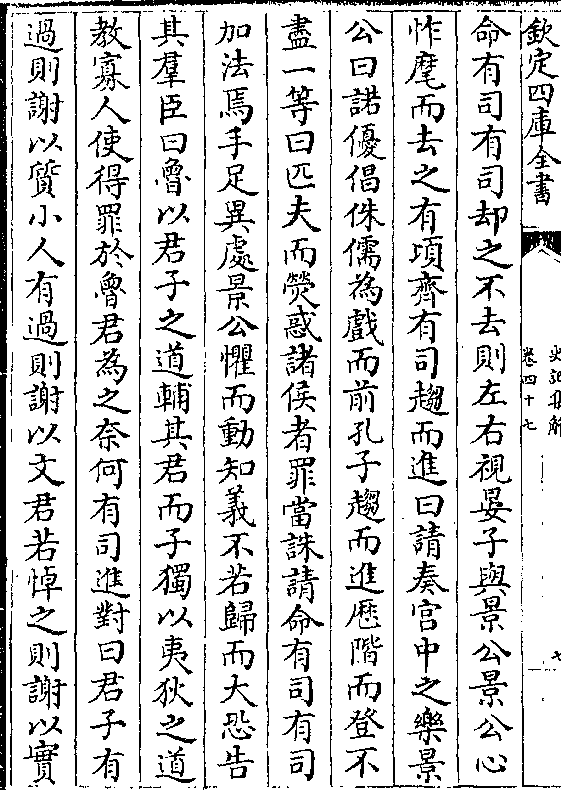 欽定四庫全書
史記集解
卷四十七
七
命有司有司却之不去則左右視晏子與景公景公心
怍麾而去之有項齊有司趨而進曰請奏宫中之樂景
公曰諾優倡侏儒為戲而前孔子趨而進歴階而登不
盡一等曰匹夫而熒惑諸侯者罪當誅請命有司有司
加法焉手足異處景公懼而動知義不若歸而大恐告
其羣臣曰魯以君子之道輔其君而子獨以夷狄之道
教寡人使得罪於魯君為之奈何有司進對曰君子有
過則謝以質小人有過則謝以文君若悼之則謝以實